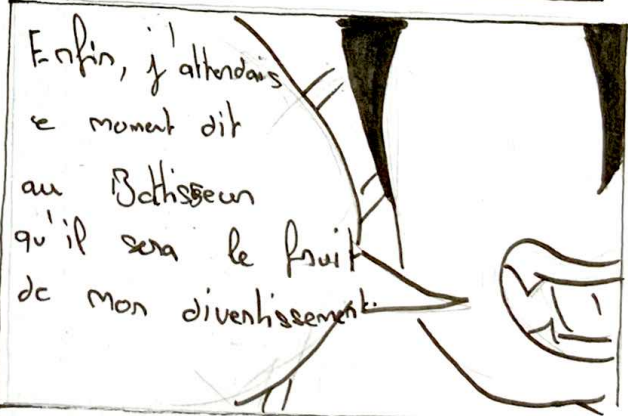 Enfin, j'attendais
ce moment dit
au Bâtisseur
qu'il sera le fruit
de mon divertissement.